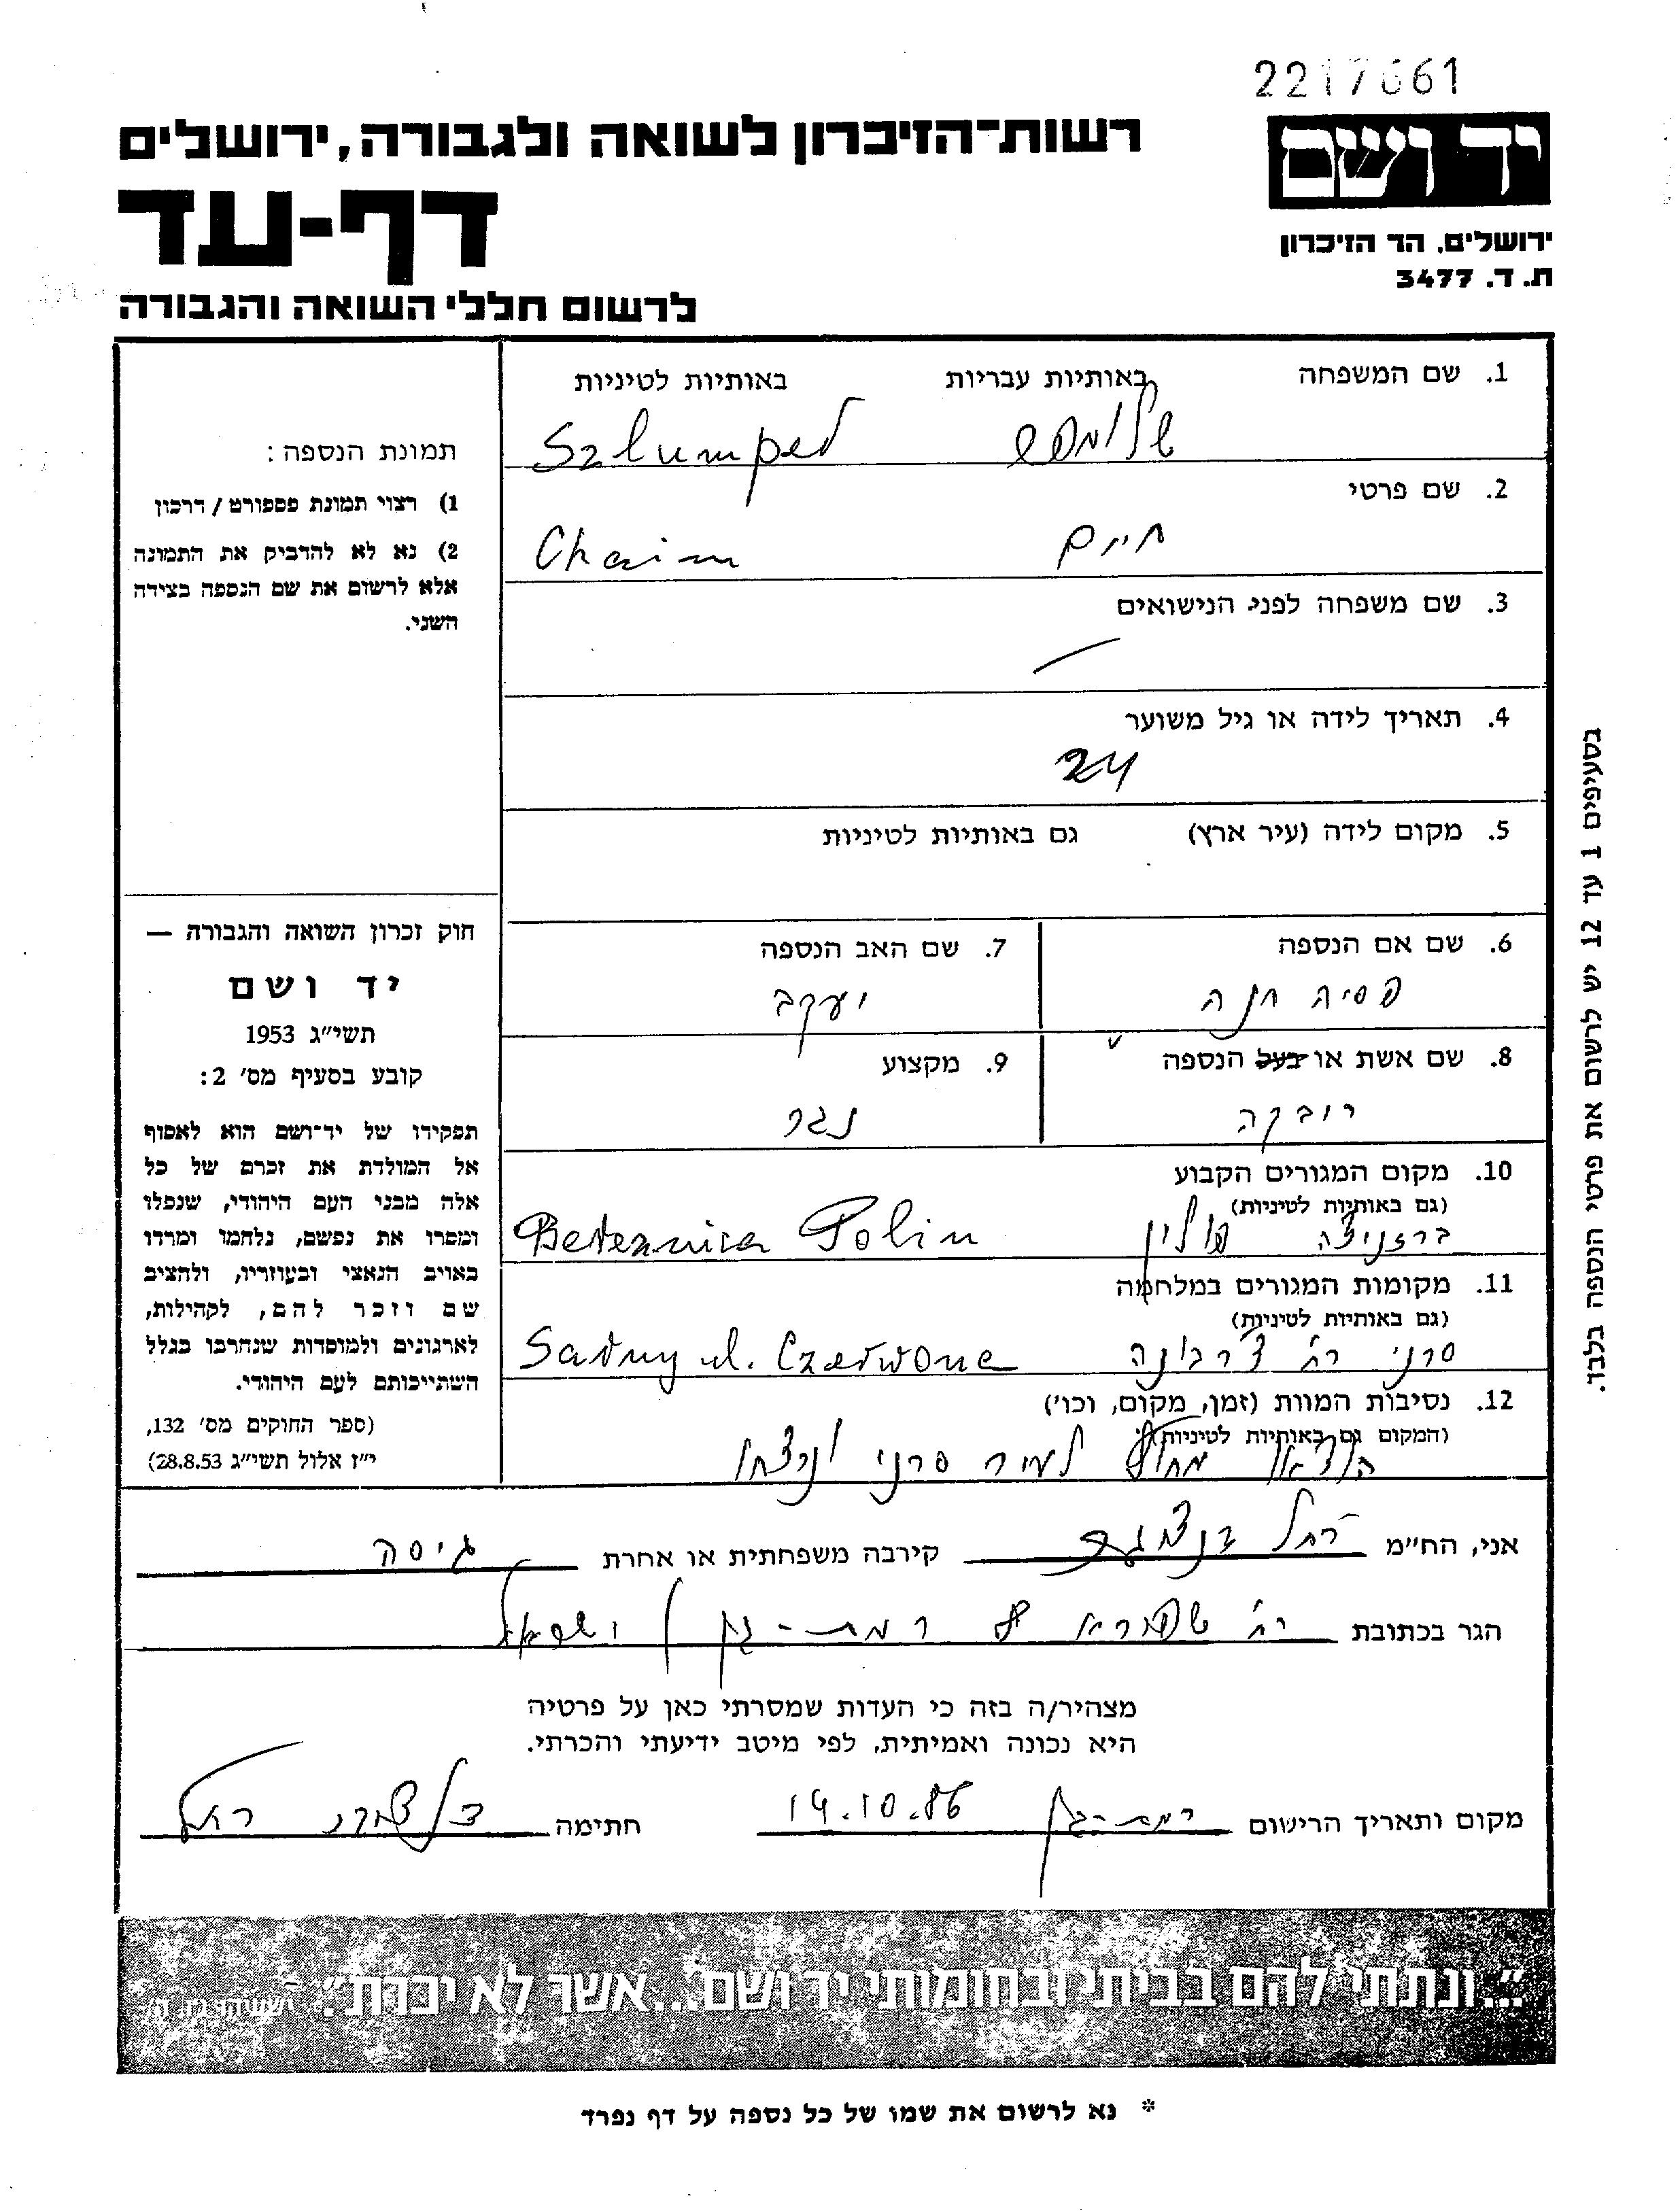 2217661
יד ושם
ירושלים, הר הזיכרון
ת. ד. 3477
רשות־הזיכרון לשואה ולגבורה, ירושלים
דף-עד
לרשום חללי השואה והגבורה
1. שם המשפחה באותיות עבריות באותיות לטיניות
Szlumper
2. שם פרטי
חיים Chaim
3. שם משפחה לפני הנישואים
4. תאריך לידה או גיל משוער
24
5. מקום לידה (עיר ארץ) גם באותיות לטיניות
6. שם אם הנספה 7. שם האב הנספה
פסיה חנה יעקב
8. שם אשת או בעל הנספה 9. מקצוע
רובקה נגר
10. מקום המגורים הקבוע
(גם באותיות לטיניות)
ברזניצה פולין Bereznica Polin
11. מקומות המגורים במלחמה
(גם באותיות לטיניות)
סרני רח' צרבונה Sarny ul. Czerwone
12. נסיבות המוות (זמן, מקום, וכו')
(המקום גם באותיות לטיניות)
הוצאו מחוץ לעיר סרני ונרצחו
תמונת הנספה:
1) רצוי תמונת פספורט / דרכון
2) נא לא להדביק את התמונה
אלא לרשום את שם הנספה בצידה
השני.
חוק זכרון השואה והגבורה —
יד ושם
תשי״ג 1953
קובע בסעיף מס' 2:
תפקידו של יד־ושם הוא לאסוף
אל המולדת את זכרם של כל
אלה מבני העם היהודי, שנפלו
ומסרו את נפשם, נלחמו ומרדו
באויב הנאצי ובעוזריו, ולהציב
שם וזכר להם, לקהילות,
לארגונים ולמוסדות שנחרבו בגלל
השתייכותם לעם היהודי.
(ספר החוקים מס' 132,
י״ז אלול תשי״ג 28.8.53)
בסעיפים 1 עד 12 יש לרשום את פרטי הנספה בלבד.
אני, הח״מ רחל קירבה משפחתית או אחרת גיסה
הגר בכתובת רח' 8 רמת-גן ישראל
מצהיר/ה בזה כי העדות שמסרתי כאן על פרטיה
היא נכונה ואמיתית, לפי מיטב ידיעתי והכרתי.
מקום ותאריך הרישום רמת-גן 14.10.86 חתימה רחל
״...ונתתי להם בביתי ובחומותי יד ושם...אשר לא יכרת״. ישעיהו נו, ה,
* נא לרשום את שמו של כל נספה על דף נפרד